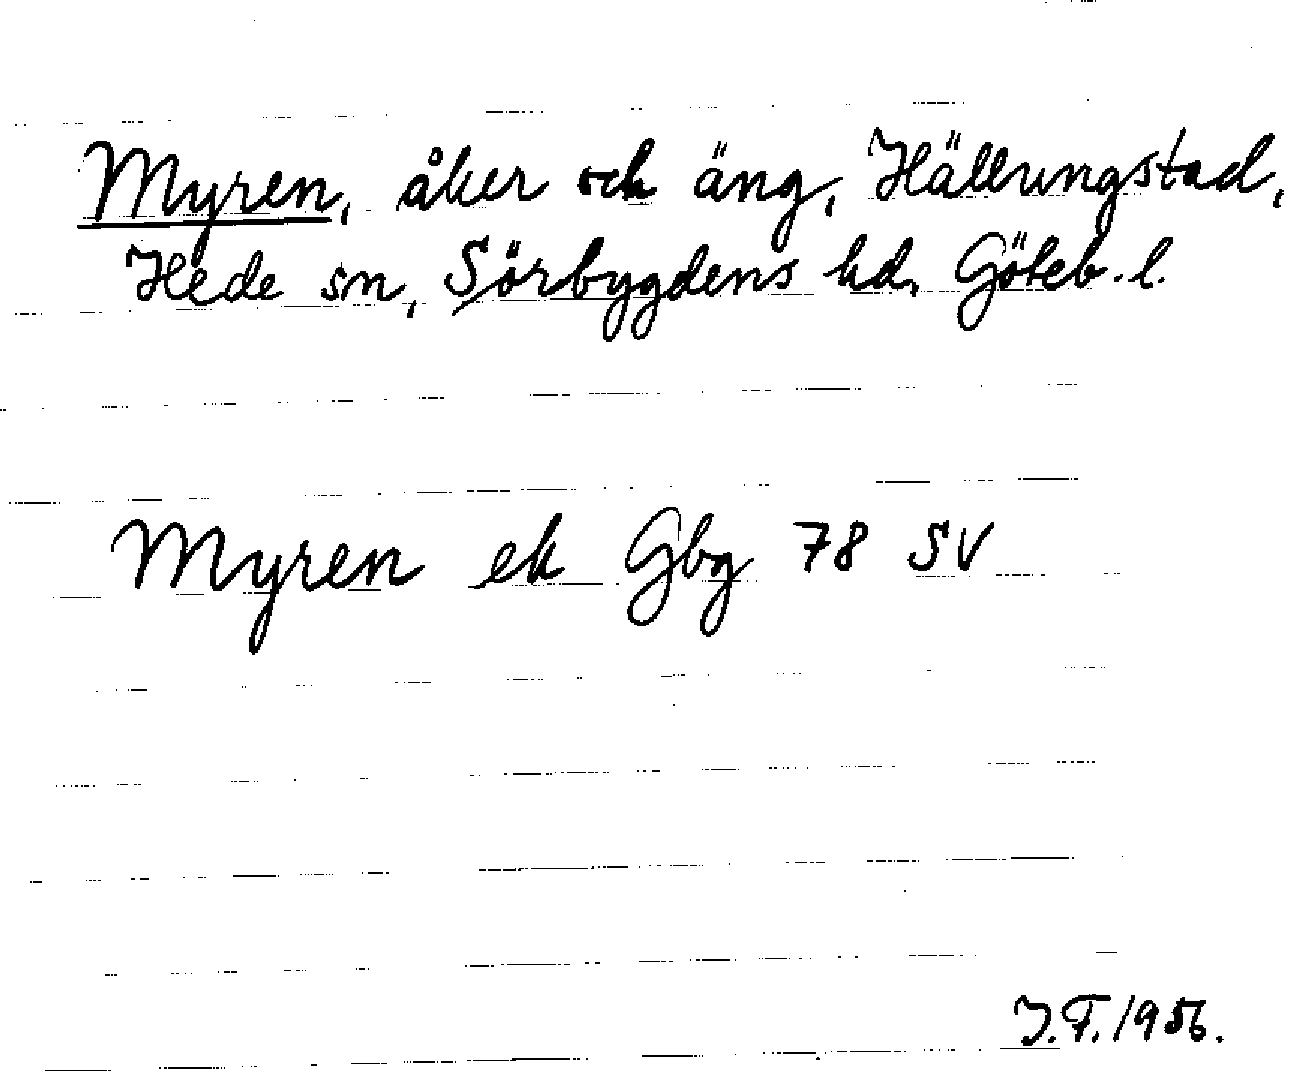 Myren, åker och äng, Hällungstad,
Hede sn, Sörbygdens hd, Göteb. l.
Myren ek Gbg 78 SV
J.F. 1956.